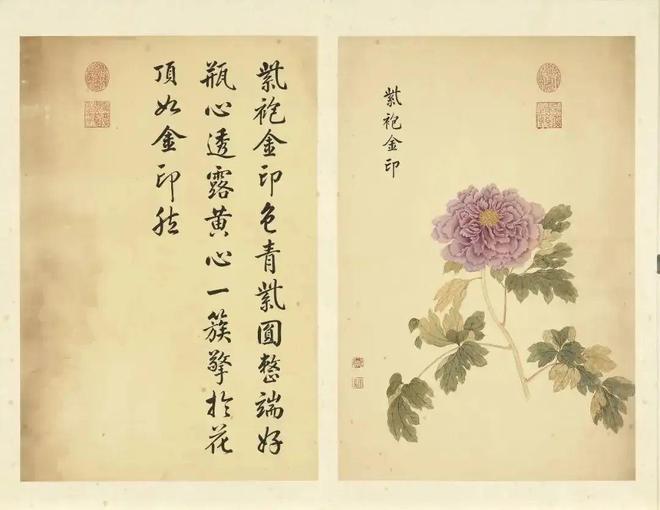 紫袍金印
紫袍金印色青紫圓整端好
瓶心透露黄心一簇擎於花
頂如金印然